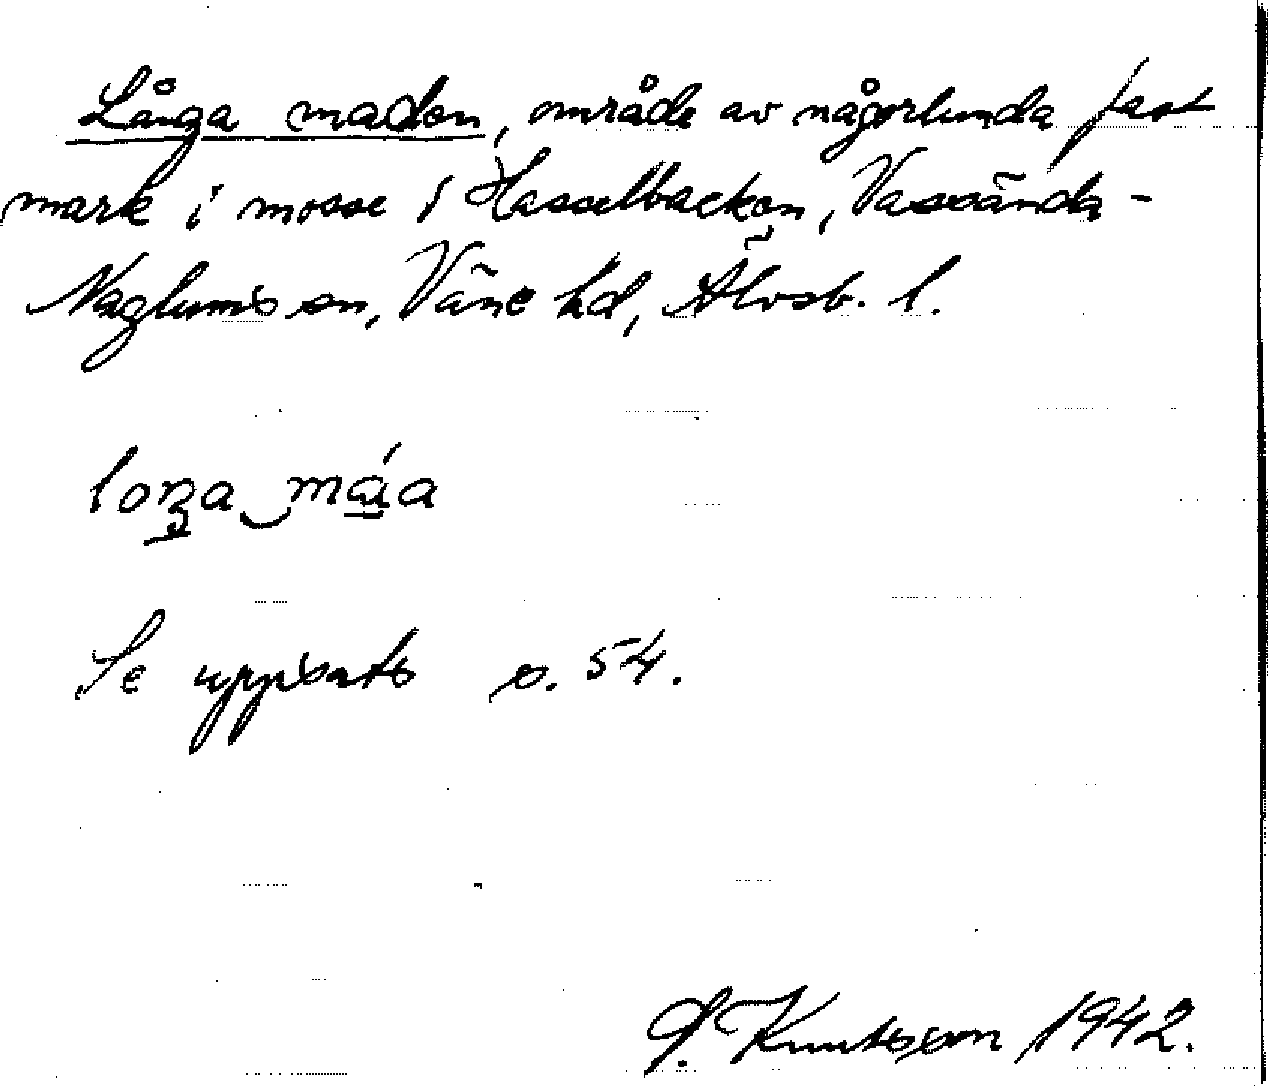 Långa maden, område av någorlunda fast
mark i mosse / Hasselbacken, Vassända-
Naglums sn, Väne hd, Älvsb. l.
Se uppsats s. 54.
Knutsson 1942.